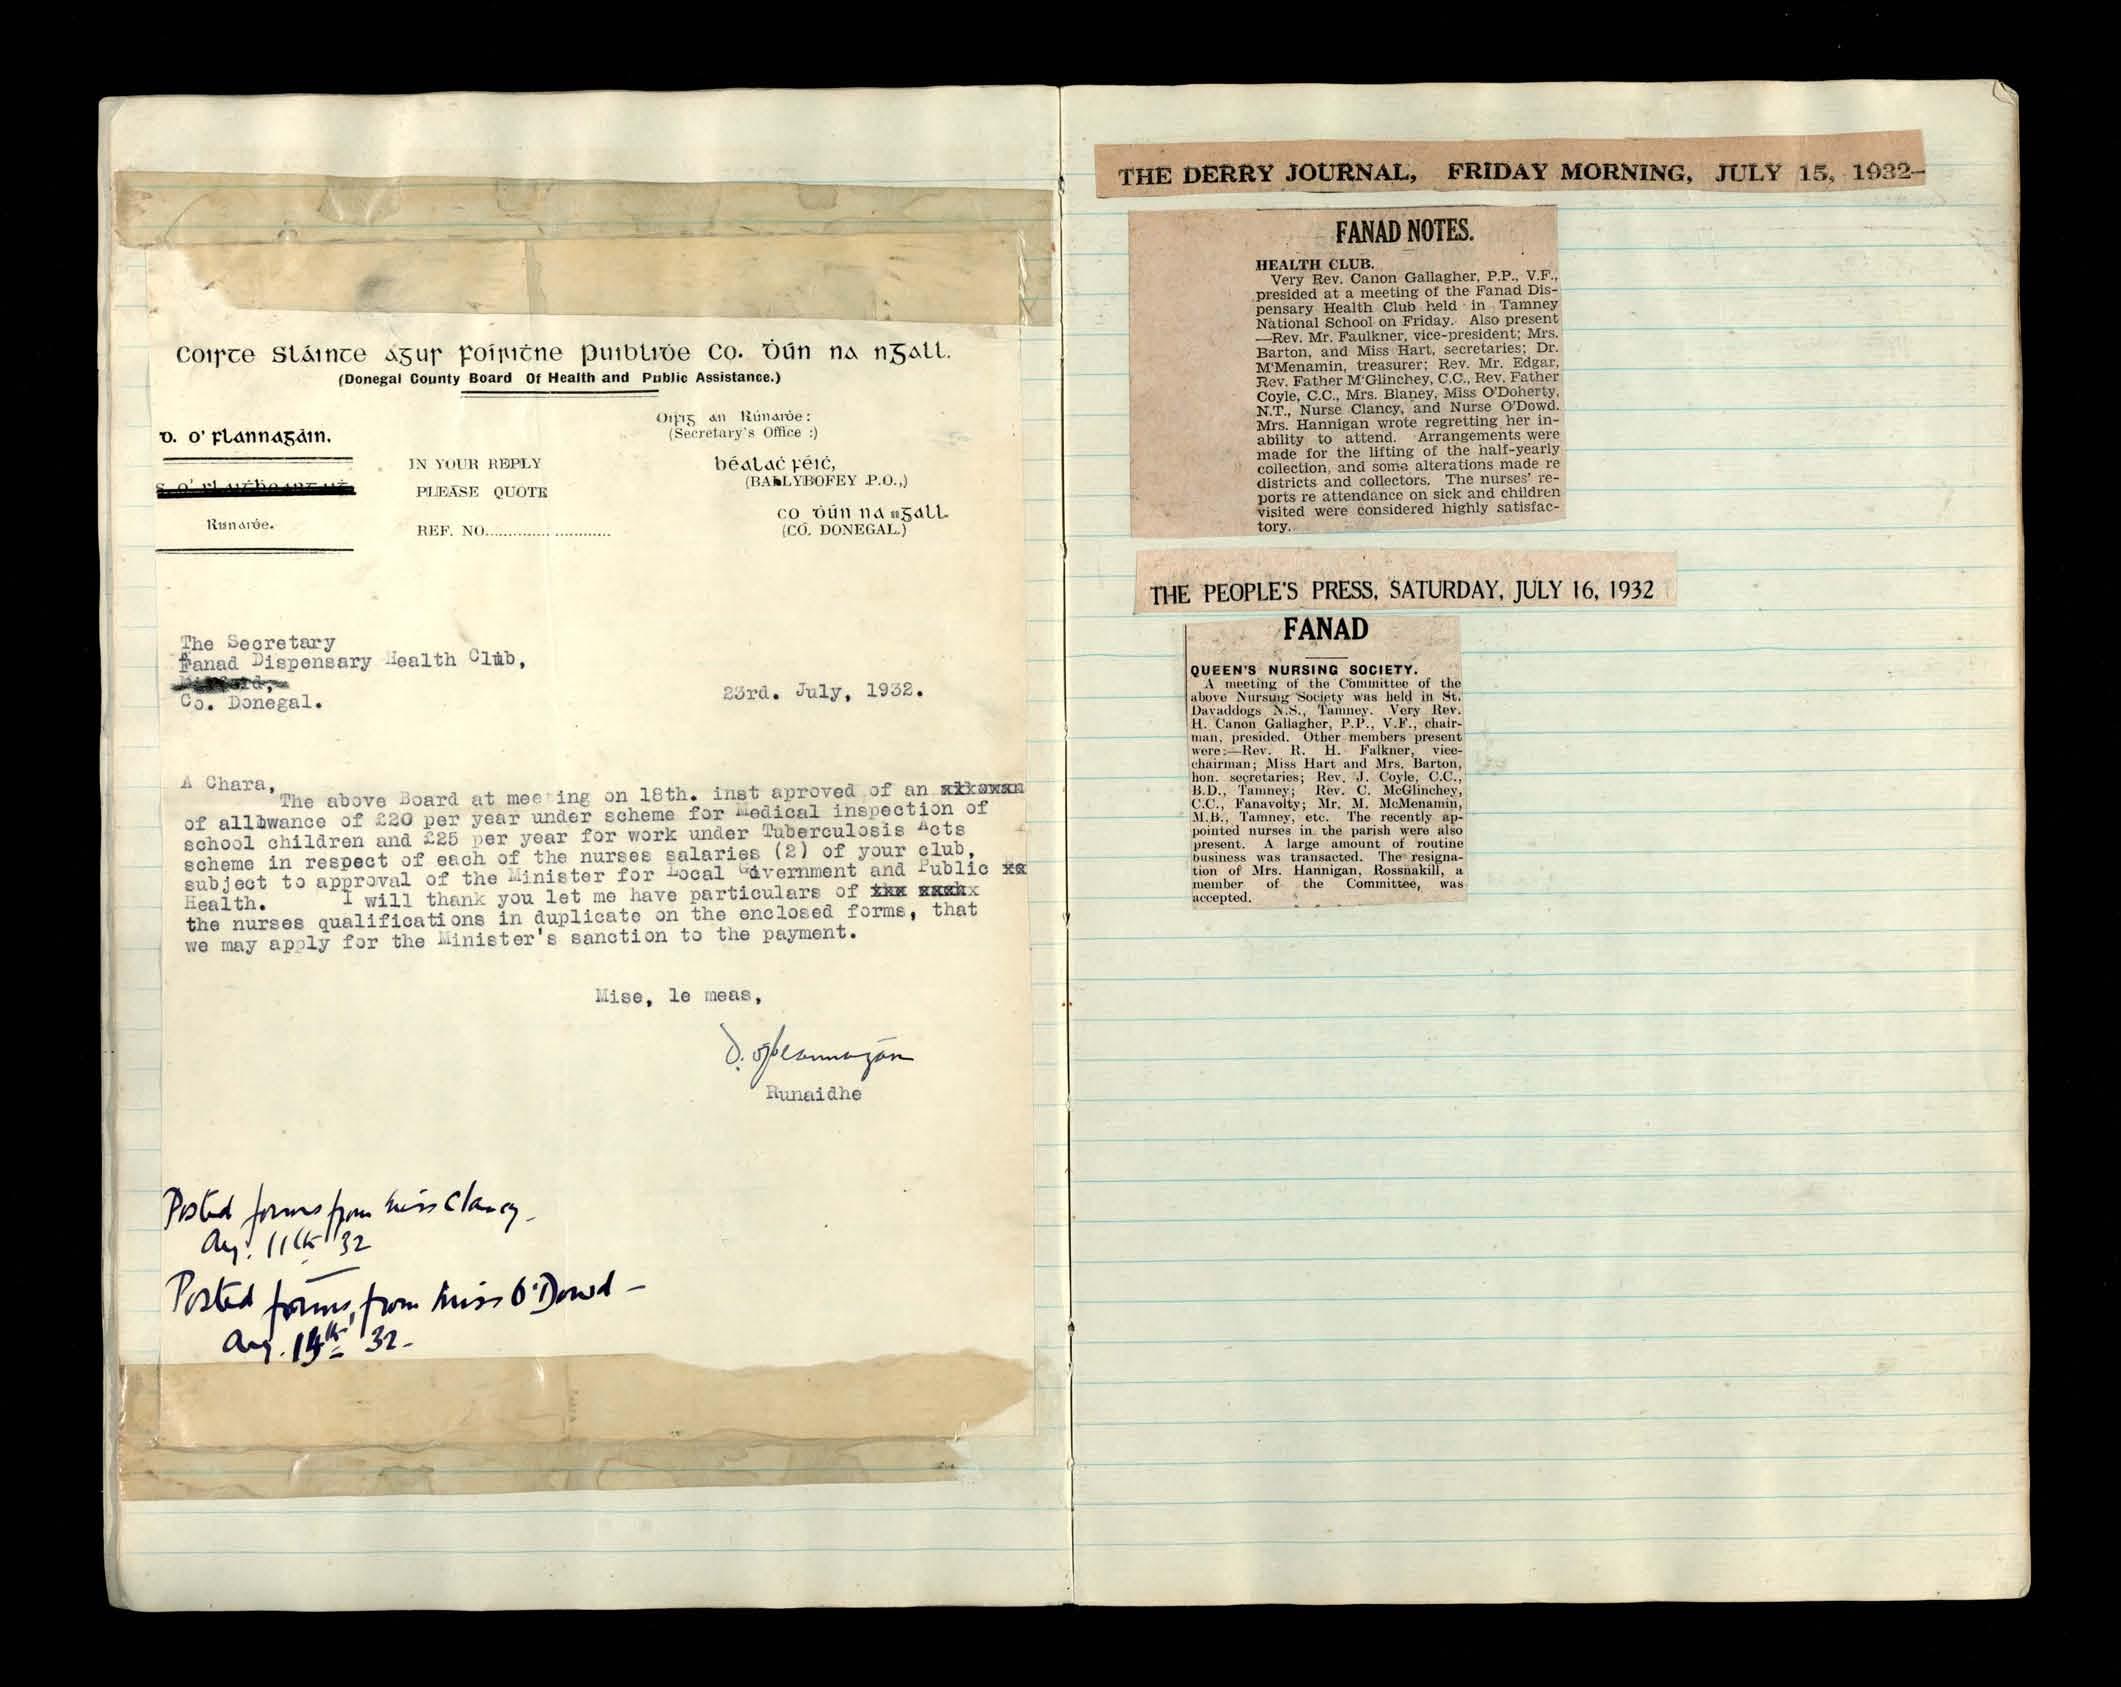 Coirte Sláinte agus Foirithne Puiblidhe Co. Dhún na nGall.
(Donegal County Board Of Health and Public Assistance.)
Oifig an Rúnaidhe:
(Secretary's Office :)
D. O' Flannagáin.
IN YOUR REPLY
PLEASE QUOTE
REF. NO...........................
Béalach Féich,
(BALLYBOFEY P.O.,)
Co Dhún na nGall
(CO. DONEGAL.)
Rúnaidhe.
The Secretary
Fanad Dispensary Health Club,
Co. Donegal.
23rd. July, 1932.
A Chara,
The above Board at meeting on 18th. inst aproved of an
of allowance of £20 per year under scheme for Medical inspection of
school children and £25 per year for work under Tuberculosis Acts
scheme in respect of each of the nurses salaries (2) of your club,
subject to approval of the Minister for Local Government and Public
Health. I will thank you let me have particulars of
the nurses qualifications in duplicate on the enclosed forms, that
we may apply for the Minister's sanction to the payment.
Mise, le meas,
D. O'Flannagáin
Runaidhe
Posted forms from Miss Clancy -
Aug. 11th 32
Posted forms, from Miss O'Dowd -
Aug. 32 -
THE DERRY JOURNAL, FRIDAY MORNING, JULY 15, 1932-
FANAD NOTES.
HEALTH CLUB.
Very Rev. Canon Gallagher, P.P., V.F.,
presided at a meeting of the Fanad Dis-
pensary Health Club held in Tamney
National School on Friday. Also present
—Rev. Mr. Faulkner, vice-president; Mrs.
Barton, and Miss Hart, secretaries; Dr.
M'Menamin, treasurer; Rev. Mr. Edgar,
Rev. Father M'Glinchey, C.C., Rev. Father
Coyle, C.C., Mrs. Blaney, Miss O'Doherty,
N.T., Nurse Clancy, and Nurse O'Dowd.
Mrs. Hannigan wrote regretting her in-
ability to attend. Arrangements were
made for the lifting of the half-yearly
collection, and some alterations made re
districts and collectors. The nurses' re-
ports re attendance on sick and children
visited were considered highly satisfac-
tory.
THE PEOPLE'S PRESS, SATURDAY, JULY 16, 1932
FANAD
QUEEN'S NURSING SOCIETY.
A meeting of the Committee of the
above Nursing Society was held in St.
Davaddogs N.S., Tamney. Very Rev.
H. Canon Gallagher, P.P., V.F., chair-
man, presided. Other members present
were:—Rev. R. H. Falkner, vice-
chairman; Miss Hart and Mrs. Barton,
hon. secretaries; Rev. J. Coyle, C.C.,
B.D., Tamney; Rev. C. McGlinchey,
C.C., Fanavolty; Mr. M. McMenamin,
M.B., Tamney, etc. The recently ap-
pointed nurses in the parish were also
present. A large amount of routine
business was transacted. The resigna-
tion of Mrs. Hannigan, Rossnakill, a
member of the Committee, was
accepted.